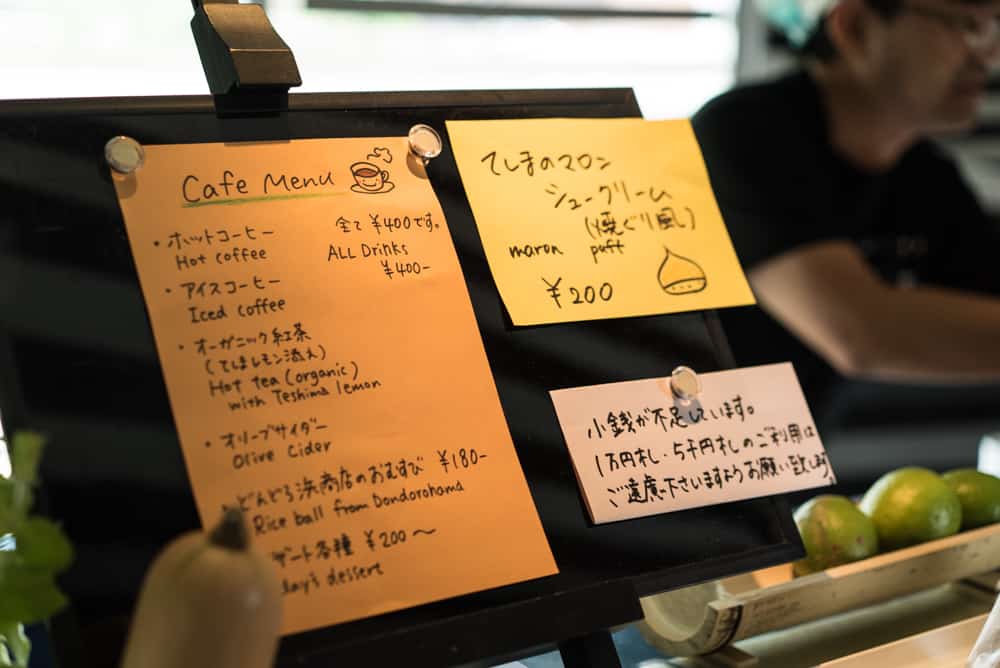 Cafe Menu
・ホットコーヒー
Hot coffee
全て ¥400です。
ALL Drinks
¥400-
・アイスコーヒー
Iced coffee
・オーガニック紅茶
(てしまレモン添え)
Hot tea (organic)
with Teshima lemon
・オリーブサイダー
Olive Cider
どんどろ浜商店のおむすび ¥180-
Rice ball from Dondorohama
ザート各種 ¥200〜
day's dessert
てしまのマロン
シュークリーム
(焼ぐり風)
maron puff
¥200
小銭が不足しています。
1万円札・5千円札のご利用は
ご遠慮下さいますようお願い致します。